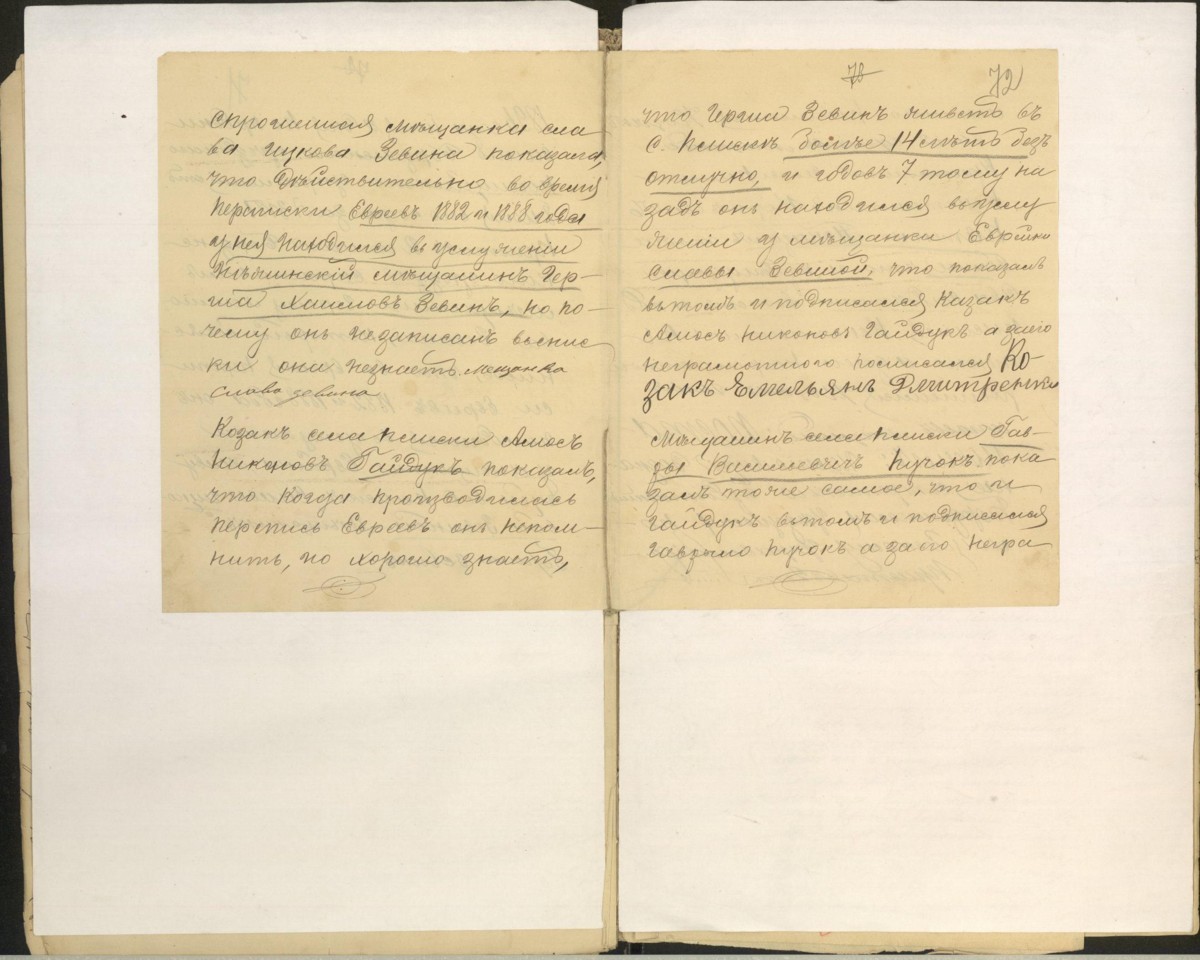 Спрошенная мѣщанка Сла
ва Ицкова Зевина показала,
что дѣйствительно во время
переписки Евреевъ 1882 и 1888 годы
у нея находился въ услуженіи
мѣщанинъ Гер-
ша Хаимовъ Зевинъ, но по-
чему онъ незаписанъ въ спис
ки она незнаетъ. Мещанка
Слава Зевина
Козакъ села Плиски Амосъ
Никоновъ Гайдукъ показалъ,
что когда производилась
перепись Евреевъ онъ непом-
нитъ, но хорошо знаетъ,
78 72
что Герша Зевинъ живетъ въ
с. Плискѣ болѣе 14 лѣтъ безъ
отлучно, и годовъ 7 тому на
задъ онъ находился въ услу
женіи у мѣщанки Еврейки
Славы Зевиной, что показалъ
въ томъ и подписался Казакъ
Амосъ Никоновъ Гайдукъ а заего
неграмотного росписался Ко-
закъ Емельянъ Дмитренко
Мѣщанинъ села Плиски Гав-
Васильевичъ Пучокъ пока
залъ тоже самое, что и
Гайдукъ въ томъ и подписался
Гаврило Пучокъ а заего негра